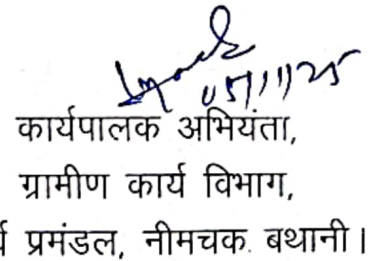 05/11/25
कार्यपालक अभियंता,
ग्रामीण कार्य विभाग,
प्रमंडल, नीमचक बथानी।